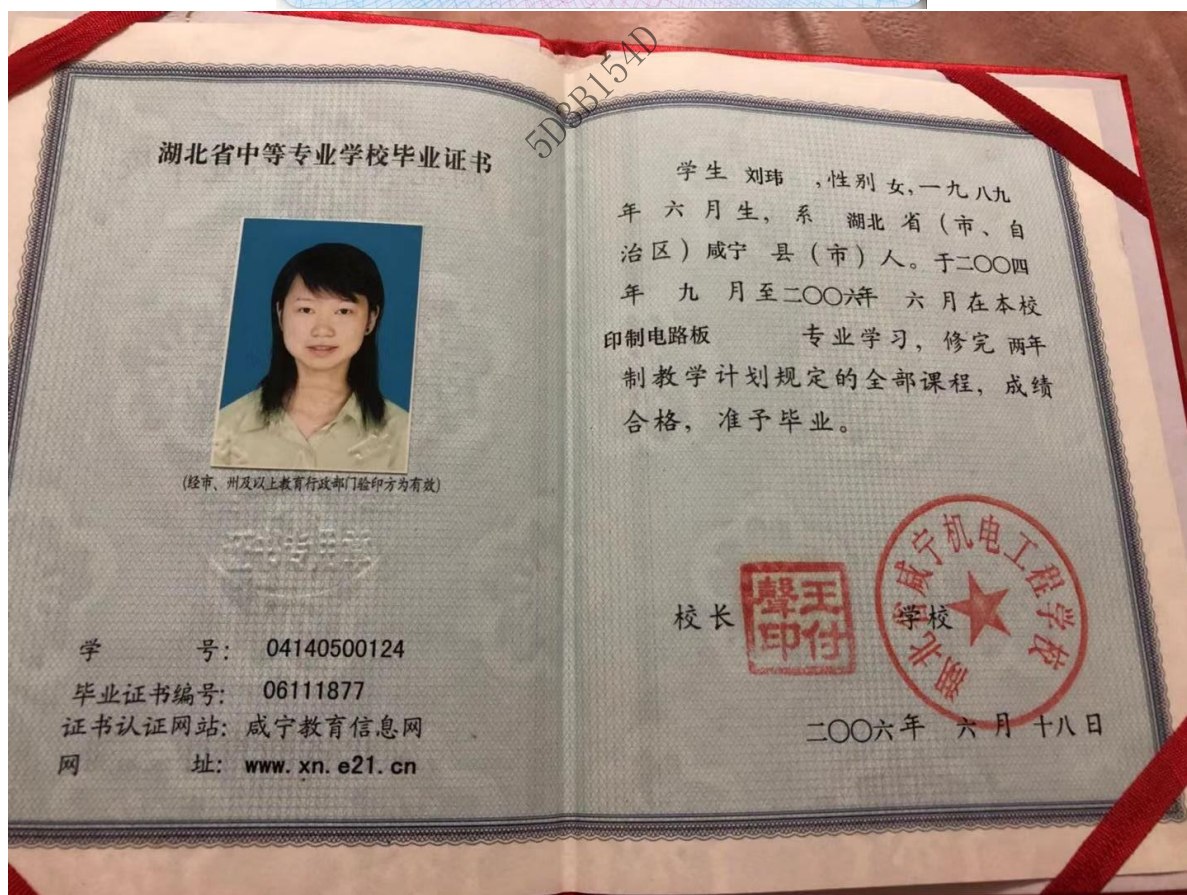 5D3B154D
湖北省中等专业学校毕业证书
(经市、州及以上教育行政部门验印方为有效)
学 号: 04140500124
毕业证书编号: 06111877
证书认证网站: 咸宁教育信息网
网 址: www.xn.e21.cn
学生 刘玮 ,性别 女,一九 八九
年 六 月生, 系 湖北 省 (市、自
治区) 咸宁 县 (市) 人。于二〇〇四
年 九 月至二〇〇六年 六 月在本校
印制电路板 专业学习, 修完 两年
制教学计划规定的全部课程, 成绩
合格, 准予毕业。
校长
王付聲印
学校
湖北省咸宁机电工程学校
二〇〇六年 六 月 十八 日